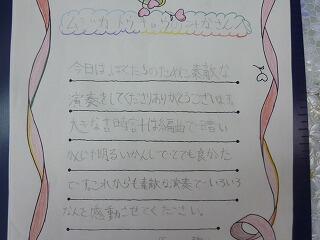 今日はぼくたちのために素敵な
演奏をしてくださりありがとうございます。
大きな古時計は編曲で暗い
かんじ明るいかんじでとても良かった
です。これからも素敵な演奏でいろいろ
なんど感動させてください。